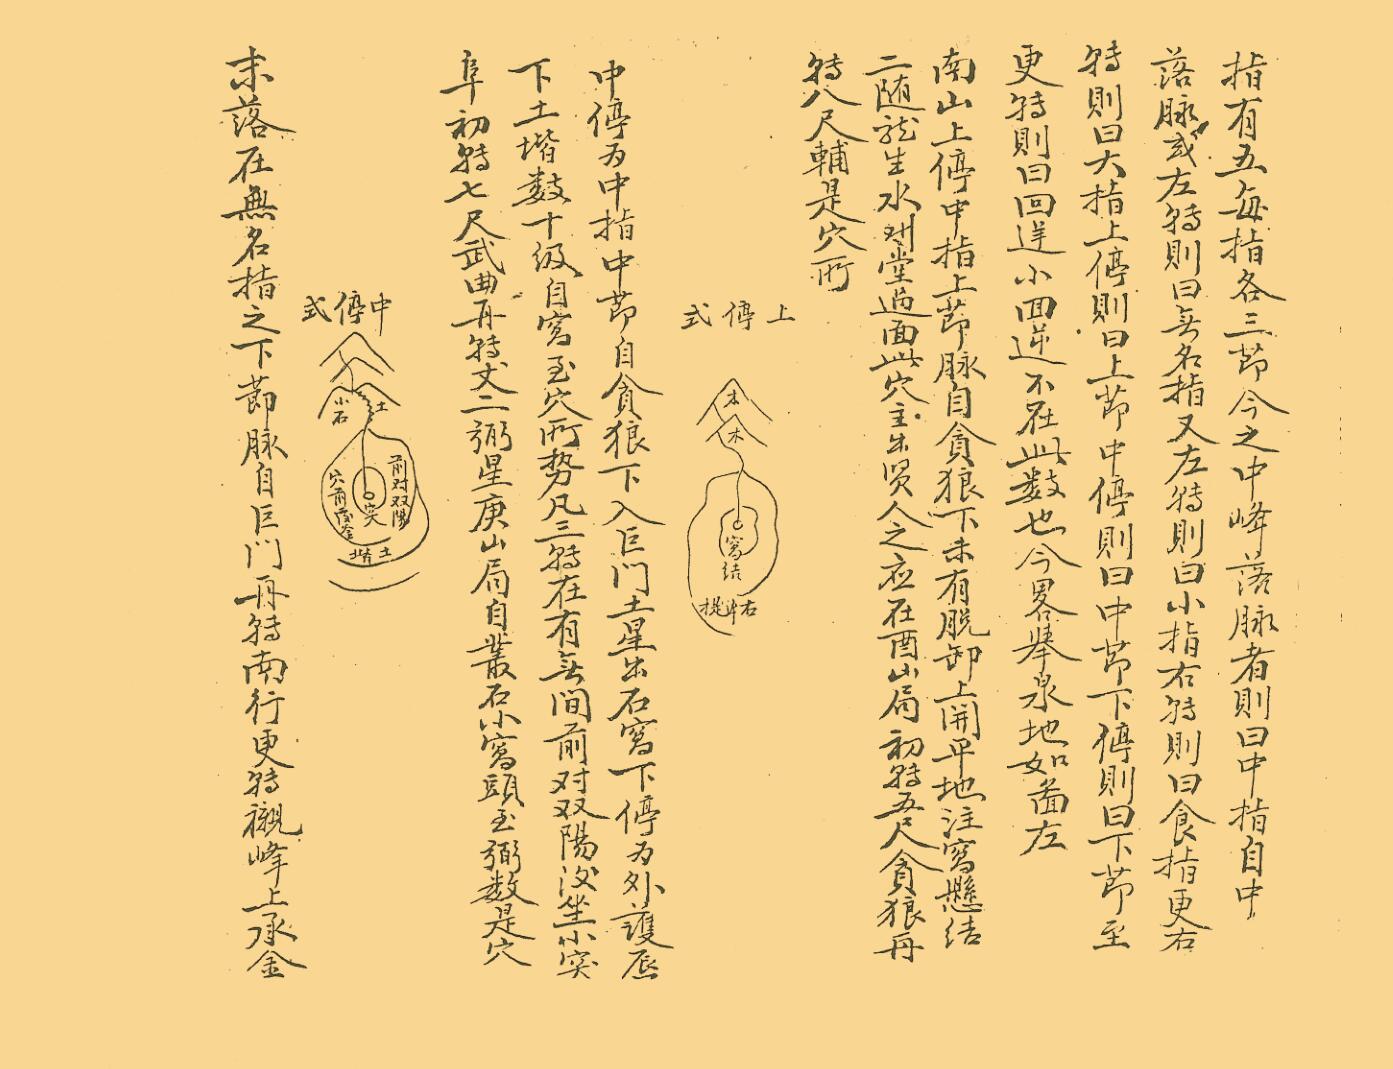 指有五每指各三節今之中峰落脉者則曰中指自中
落脉或左轉則曰無名指又左轉則曰小指右轉則曰食指更右
轉則曰大指上停則曰上節中停則曰中節下停則曰下節至
更轉則曰回逆小面逆不在此數也今畧舉泉地如啚左
南山上停中指上節脉自貪狼下未有脱卸上開平地注窩懸結
二随龍生水対堂過面此穴主出賢人之應在酉山局初轉五尺貪狼再
轉八尺輔是穴所
上停式
木
木
窩結
右掌提
中停為中指中節自貪狼下入巨門土星出石窩下停為外護辰
下土堦数十級自窩至穴所勢凡三轉在有無間前対双陽後坐小突
阜初轉七尺武曲再轉丈二弼星庚山局自叢石小窩頭至弼数是穴
中停式
小石
土
前対双陽
突
土堦
末落在無名指之下節脉自巨門再轉南行更轉襯峰上承金